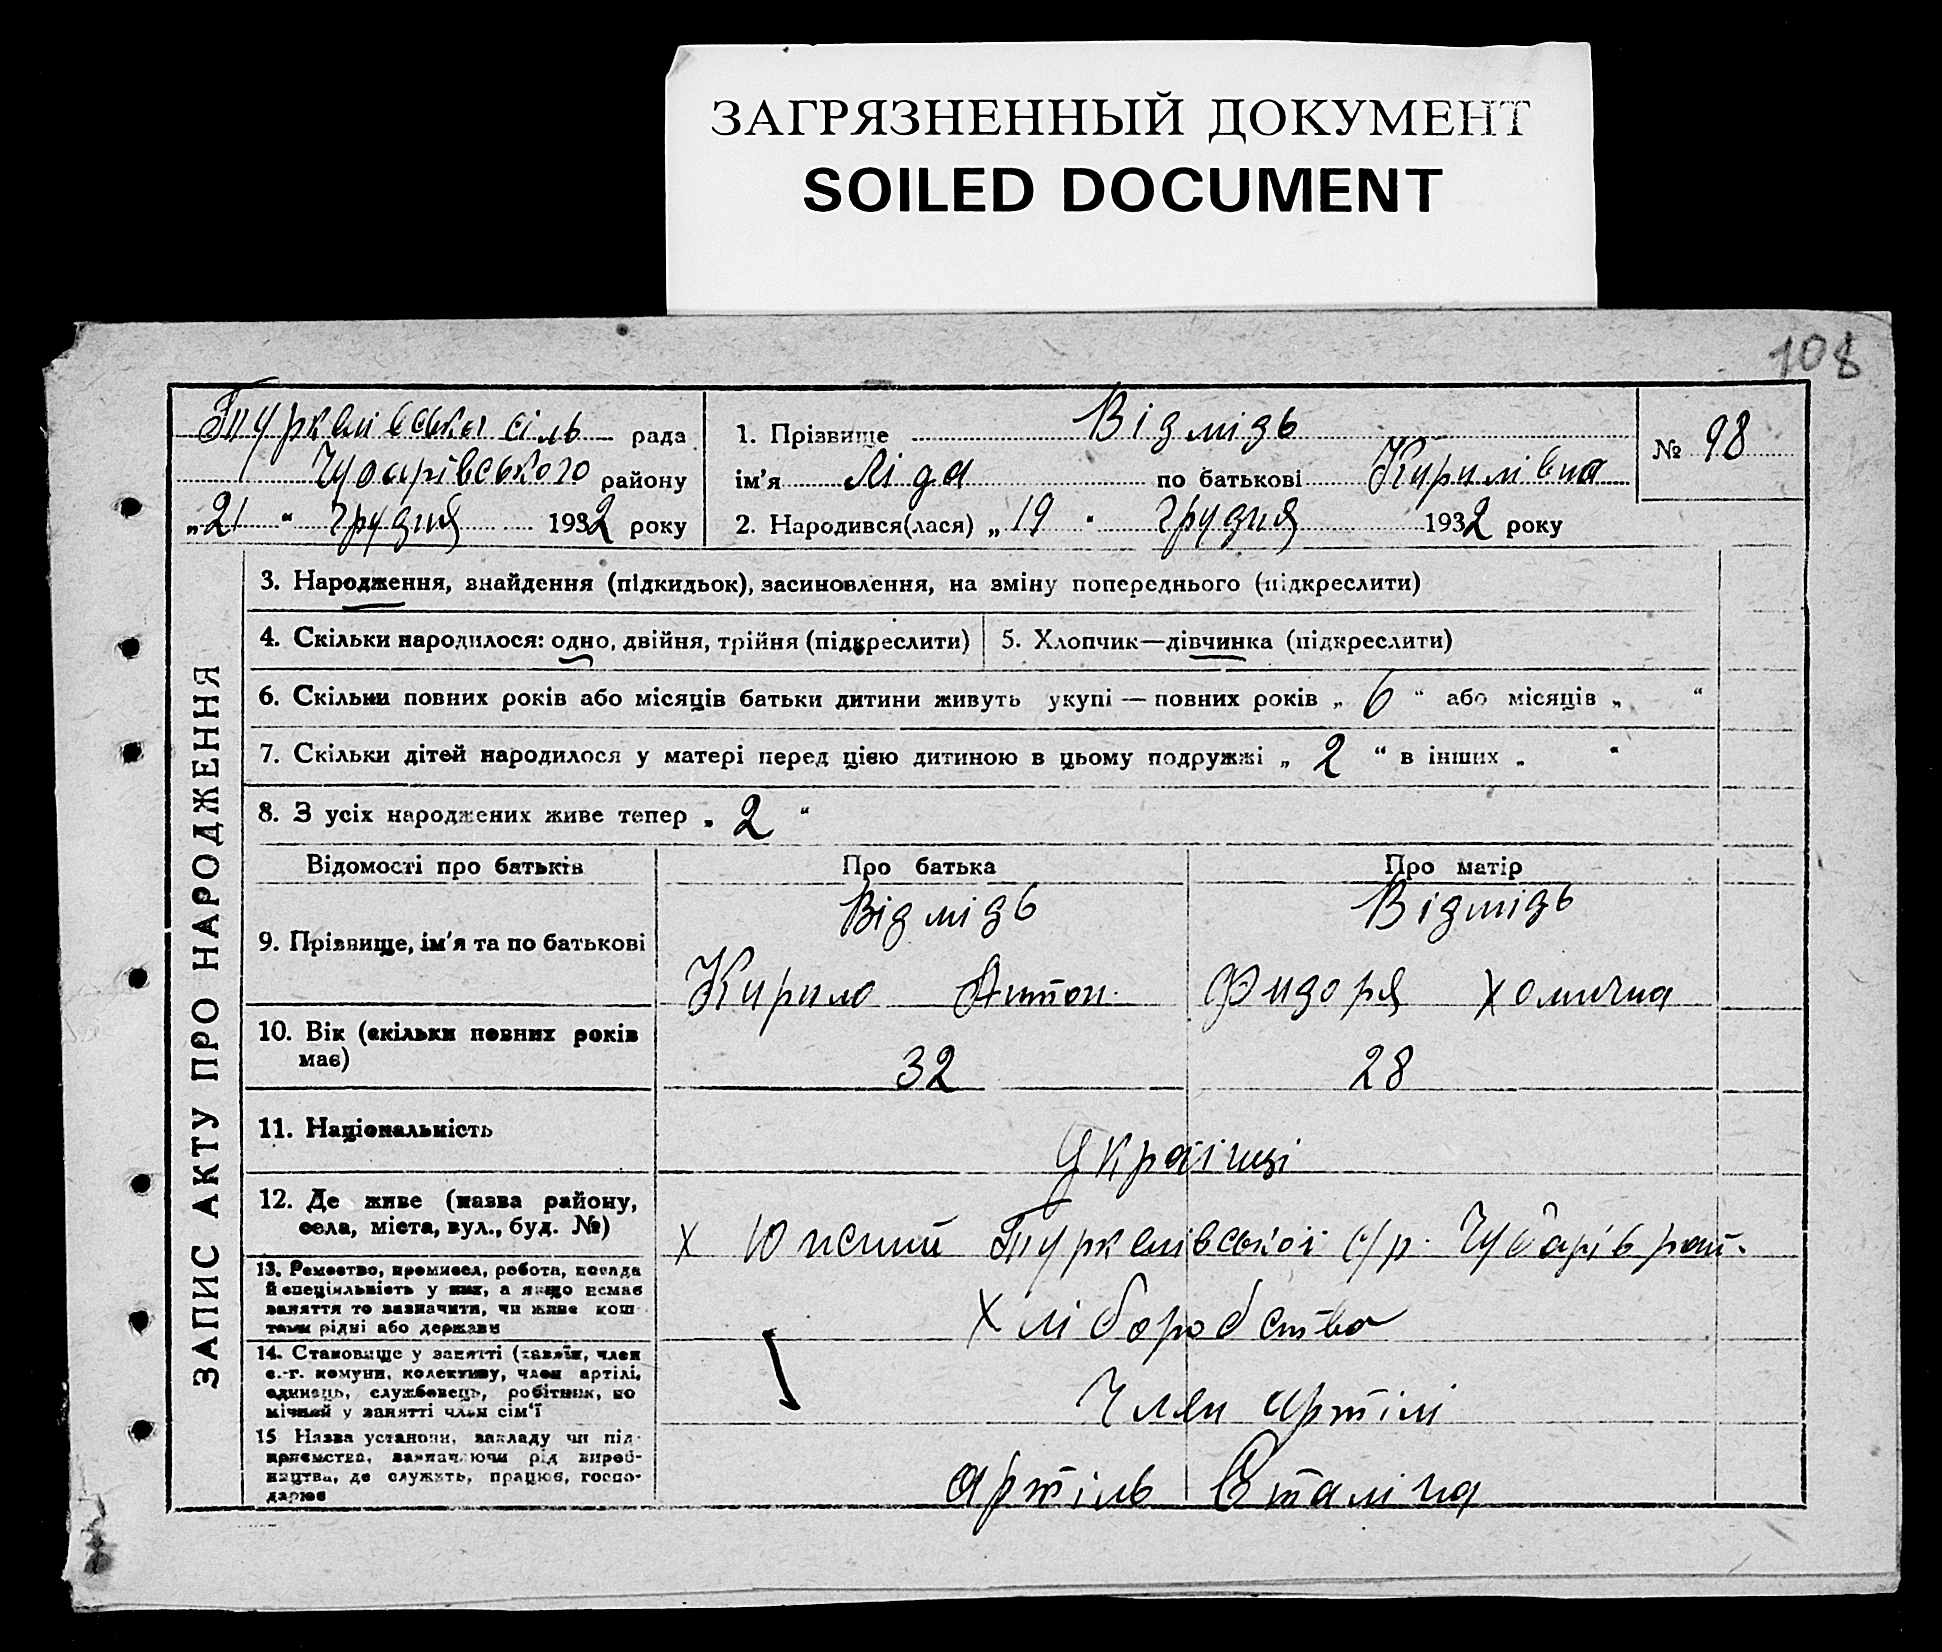 ЗАГРЯЗНЕННЫЙ ДОКУМЕНТ
SOILED DOCUMENT
108
сіль рада
Чубарівського району
„21“ грудня 1932 року
1. Прізвище Відмідь
ім'я Ліда по батькові Кирилівна
2. Народився(лася) „19“ грудня 1932 року
№ 98
ЗАПИС АКТУ ПРО НАРОДЖЕННЯ
3. Народження, знайдення (підкидьок), засиновлення, на зміну попереднього (підкреслити)
4. Скільки народилося: одно, двійня, трійня (підкреслити)
5. Хлопчик—дівчинка (підкреслити)
6. Скільки повних років або місяців батьки дитини живуть укупі — повних років „6“ або місяців „ “
7. Скільки дітей народилося у матері перед цією дитиною в цьому подружжі „2“ в інших „ “
8. З усіх народжених живе тепер „2“
Відомості про батьків
Про батька
Про матір
9. Прізвище, ім'я та по батькові
Відмідь
Кирило Антон.
Відмідь
Фидоря Хомична
10. Вік (скільки повних років
має)
32
28
11. Національність
Українці
12. Де живе (назва району,
села, міста, вул., буд. №)
х с/р. Чубарів рай.
13. Ремество, промисел, робота, посада
й спеціяльність у них, а якщо немає
заняття то зазначити, чи живе кош-
тами рідні або держави
Хліборобство
14. Становище у занятті (хазяїн, член
с.-г. комуни, колективу, член артілі,
одинець, службовець, робітник, по
мічний у занятті член сім'ї
Член артілі
15 Назва установи, закладу чи під-
приємства, зазначаючи рід вироб-
ництва, де служить, працює, госпо-
дарює
артіль Сталіна